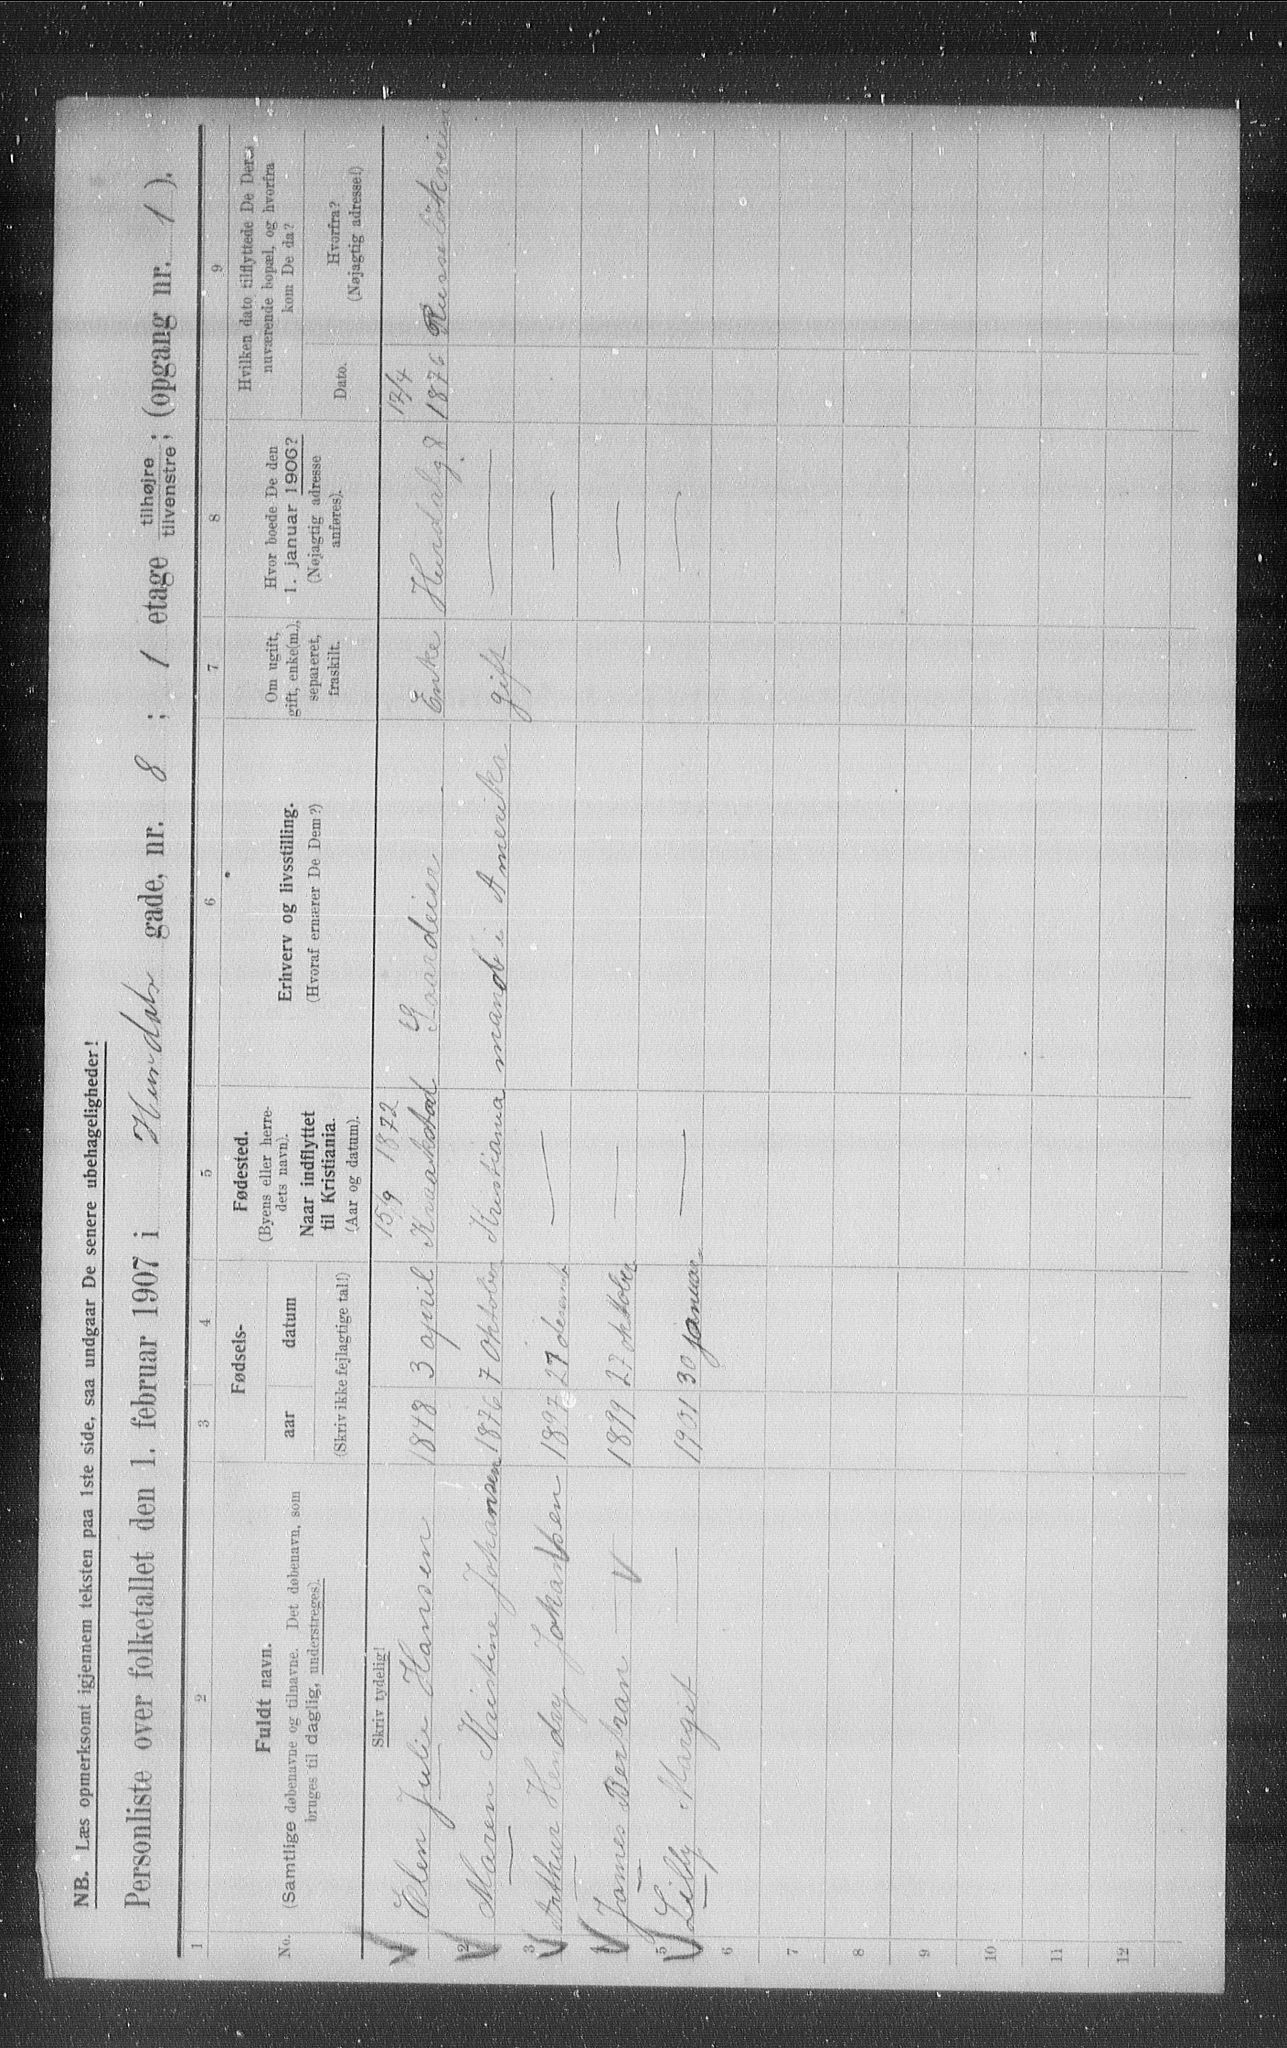 NB. Læs opmerksomt igjennem teksten paa 1ste side, saa undgaar De senere ubehageligheder!
Personliste over folketallet den 1. februar 1907 i Hurdals gade, nr. 8 ; 1 etage tilhøjre, tilvenstre; (opgang nr. 1 ).
1 2 3 4 5 6 7 8 9
No. Fuldt navn. (Samtlige døbenavne og tilnavne. Det døbenavn, som bruges til daglig, understreges).
Fødsels- aar datum (Skriv ikke fejlagtige tal!)
Fødested. (Byens eller herredets navn). Naar indflyttet til Kristiania. (Aar og datum).
Erhverv og livsstilling. (Hvoraf ernærer De Dem?)
Om ugift, gift, enke(m.), separeret, fraskilt.
Hvor boede De den 1. januar 1906? (Nøjagtig adresse anføres).
Hvilken dato tilflyttede De Deres nuværende bopæl, og hvorfra kom De da? Dato. Hvorfra? (Nøjagtig adresse!)
Skriv tydelig!
15/9 1872 12/4
1 Elen Julie Hansen 1848 3 april Kraakstad Gaardeier Enke Hurdalsg 8 1876 Russeløkveien
2 Maren Kristine Johansen 1876 7 Oktober Kristiania mand i Amerika gift —
3 Arthur Hendry Johansen 1897 27 desemb — —
4 James Bertran — 1899 27 oktober — —
5 Lilly Margit — 1901 30 januar — —
6
7
8
9
10
11
12